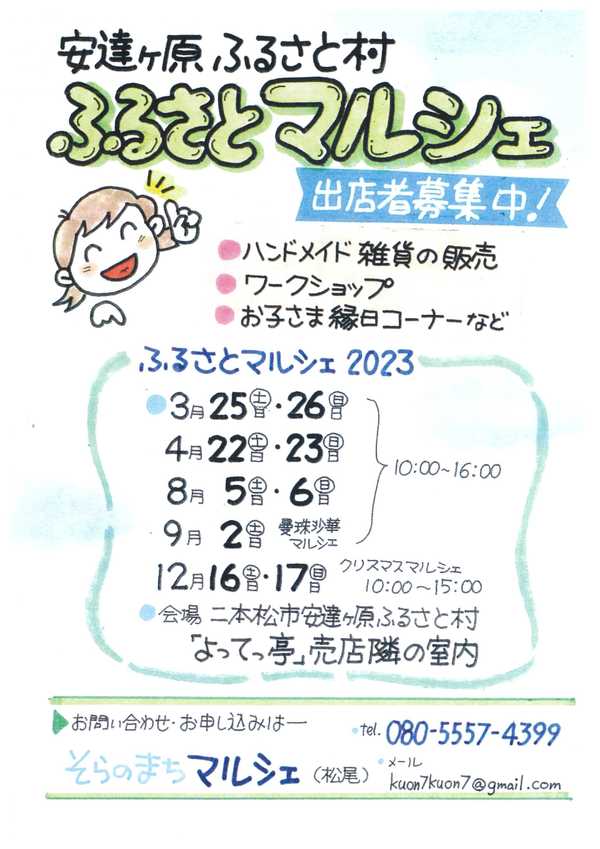 安達ヶ原ふるさと村
ふるさとマルシェ
出店者募集中!
ハンドメイド雑貨の販売
ワークショップ
お子さま縁日コーナーなど
ふるさとマルシェ 2023
3月25㊏・26㊐
4月22㊏・23㊐
10:00~16:00
8月 5㊏・6㊐
9月 2㊏ 曼珠沙華マルシェ
12月16㊏・17㊐ クリスマスマルシェ
10:00~15:00
会場 二本松市安達ヶ原ふるさと村
「よってっ亭」売店隣の室内
お問い合わせ・お申し込みは―
・tel. 080-5557-4399
そらのまちマルシェ(松尾)
・メール
kuon7kuon7@gmail.com